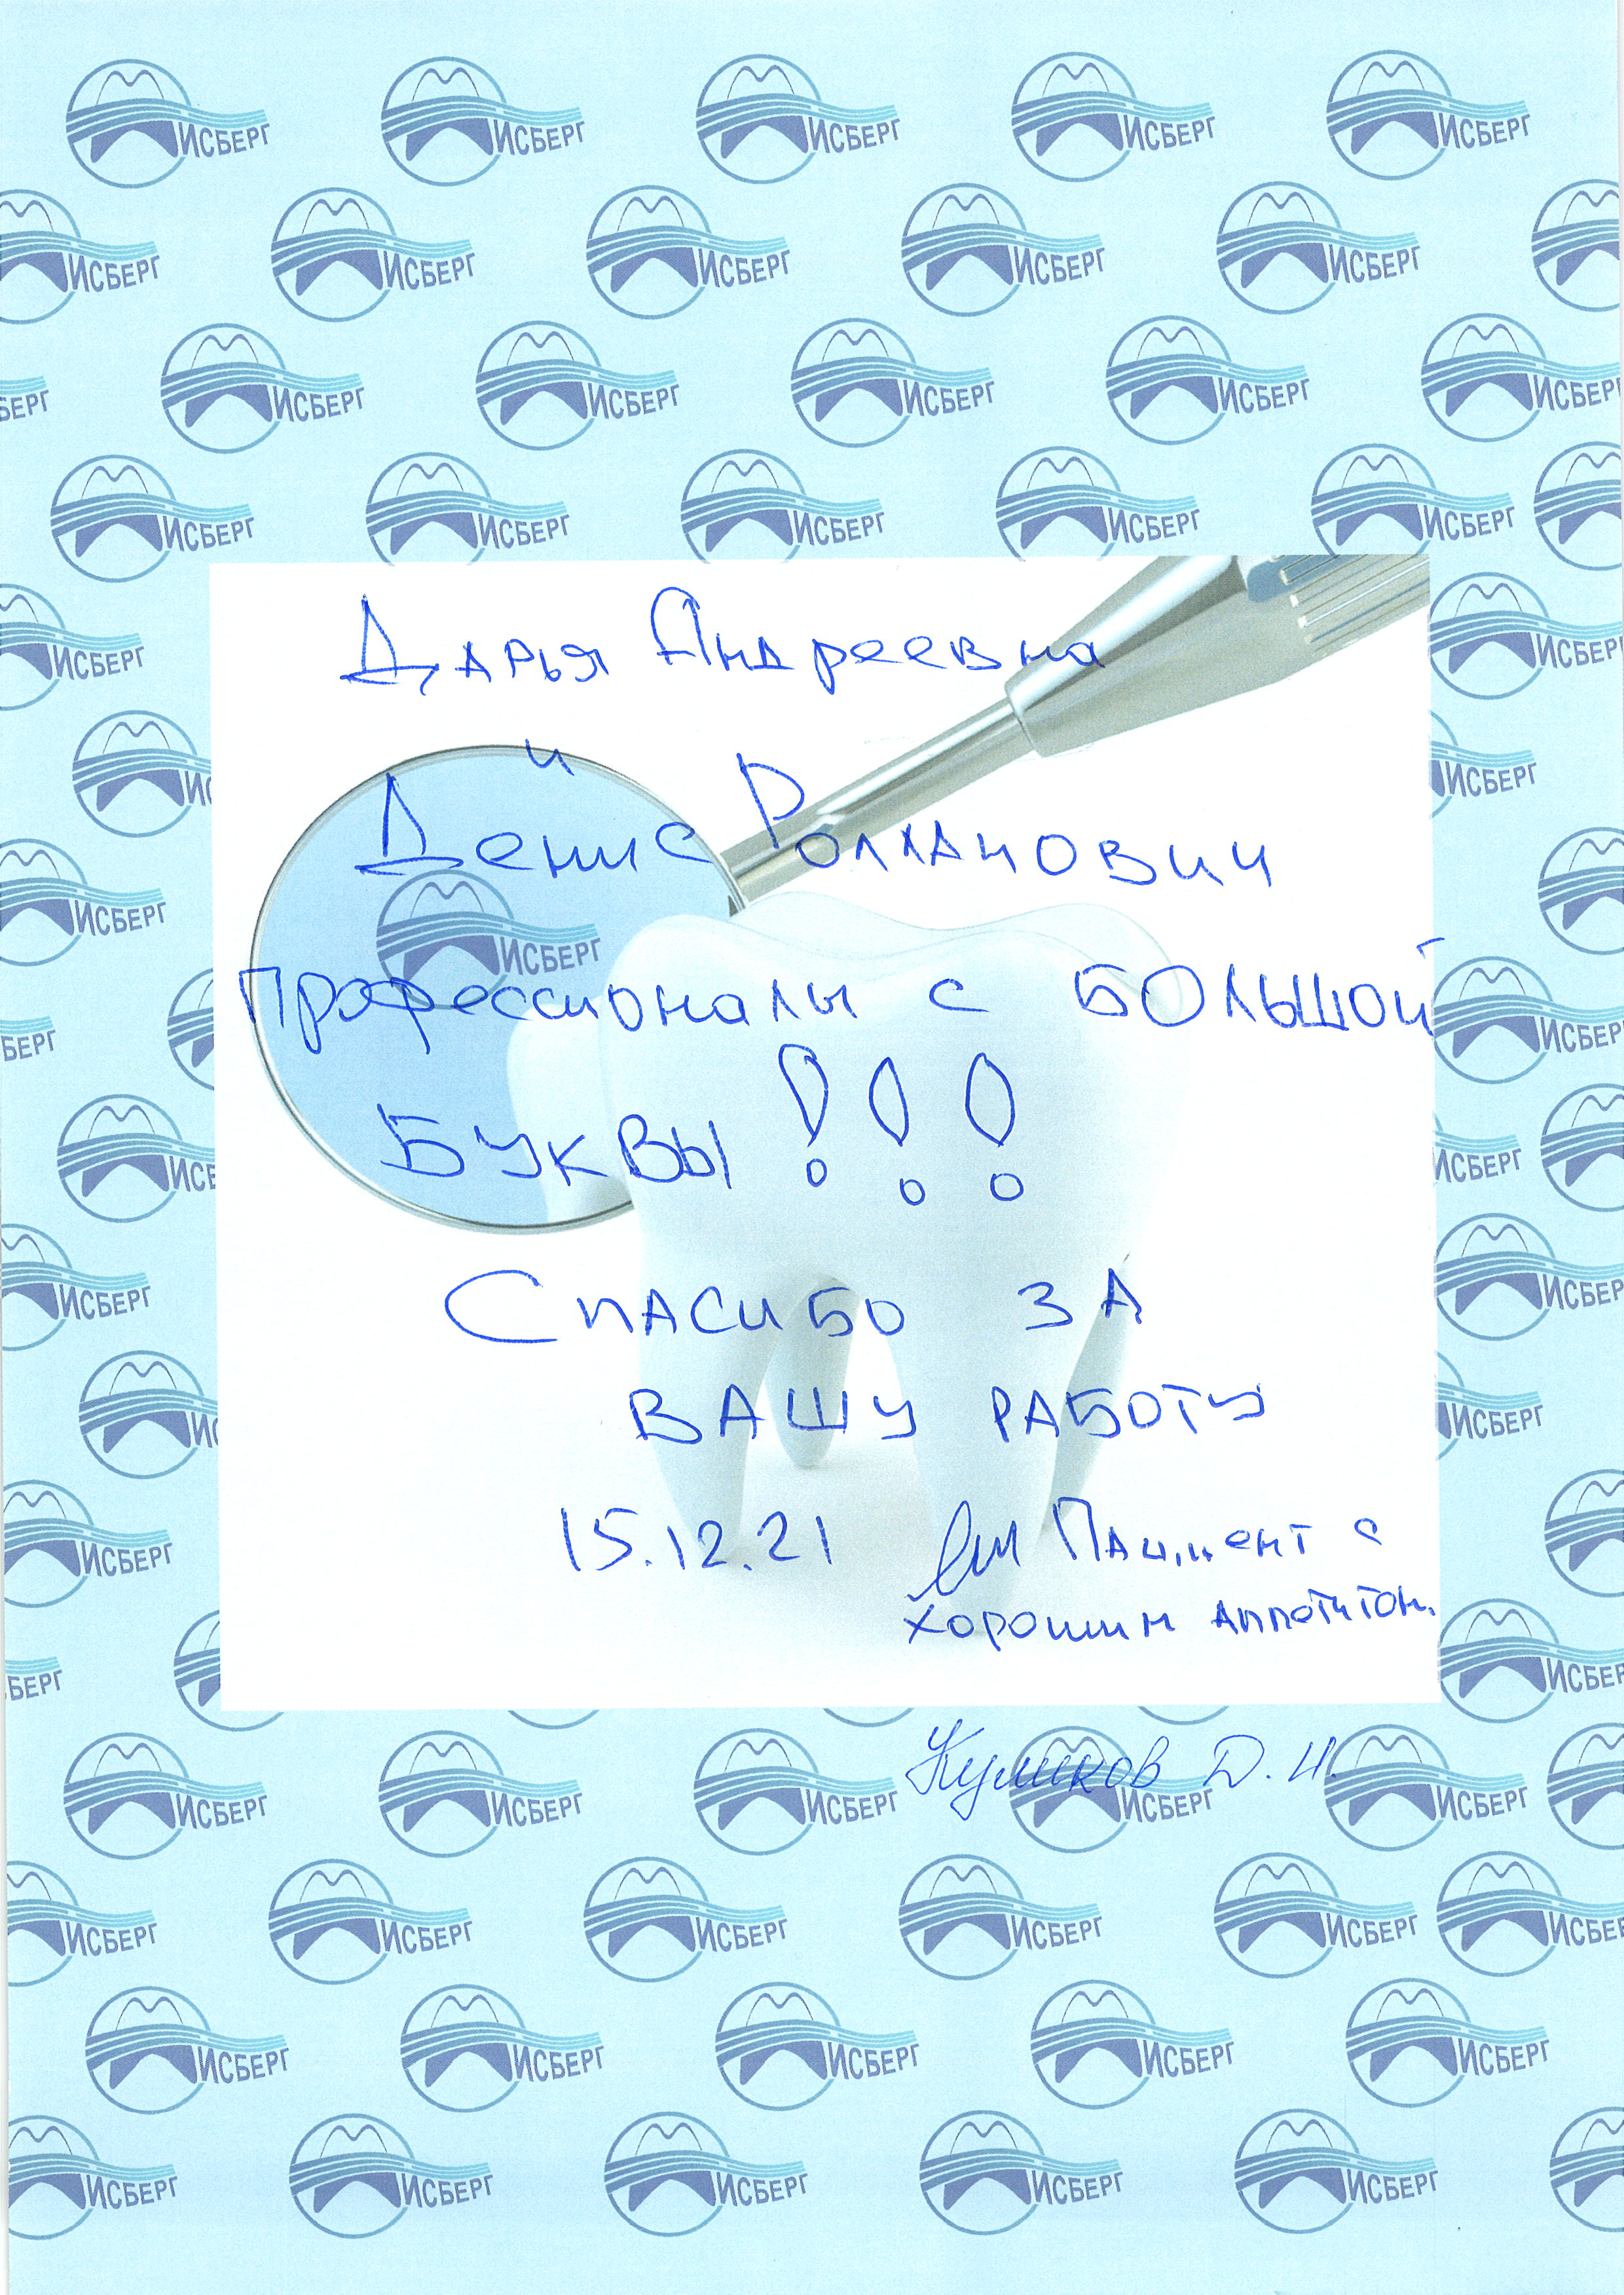 Дарья Андреевна
и
Денис Ролланович
Профессионалы с большой
буквы!!!
Спасибо за
вашу работу
15.12.21 Пациент с
хорошим аппетитом.
Куликов Д. И.
ИСБЕРГ